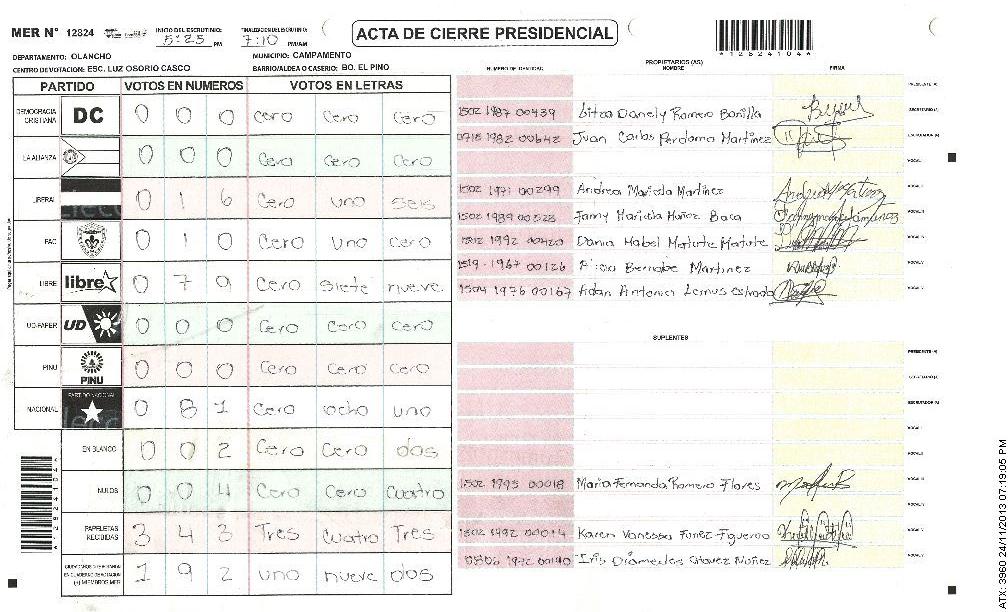 MER N° 12824 INICIO DEL ESCRUTINIO: 5:25 PM FINALIZACION DEL ESCRUTINIO: 7:10 PM/AM ACTA DE CIERRE PRESIDENCIAL
DEPARTAMENTO: OLANCHO MUNICIPIO: CAMPAMENTO
CENTRO DE VOTACION: ESC. LUZ OSORIO CASCO BARRIO/ALDEA O CASERIO: BO. EL PINO
PARTIDO VOTOS EN NUMEROS VOTOS EN LETRAS
DEMOCRACIA CRISTIANA DC 0 0 0 Cero Cero Cero
LA ALIANZA 0 0 0 Cero Cero Cero
LIBERAL 0 1 6 Cero uno seis
PAC 0 1 0 Cero uno Cero
LIBRE libre 0 7 9 Cero siete nueve
UD-FAPER UD 0 0 0 Cero Cero Cero
PINU PINU 0 0 0 Cero Cero Cero
NACIONAL PARTIDO NACIONAL 0 8 1 Cero ocho uno
EN BLANCO 0 0 2 Cero Cero dos
NULOS 0 0 4 Cero Cero cuatro
PAPELETAS RECIBIDAS 3 4 3 Tres cuatro Tres
1 9 2 uno nueve dos
NUMERO DE IDENTIDAD PROPIETARIOS (AS) NOMBRE FIRMA
PRESIDENTE (A)
1502 1987 00439 Danely Romero Bonilla SECRETARIO (A)
0715 1982 00642 Juan Carlos Perdomo Martinez ESCRUTADOR (A)
VOCAL I
1502 1971 00299 Andrea Martinez VOCAL II
1502 1989 00528 Fanny Maricela Muñoz Baca VOCAL III
1502 1992 00420 Dania Mabel Matute Matute VOCAL IV
1519-1967 00126 Bernabe Martinez VOCAL V
1504 1976 00167 Adan Antonio Lemus Estrada
SUPLENTES
PRESIDENTE (A)
SECRETARIO (A)
ESCRUTADOR (A)
VOCAL I
VOCAL II
1502 1993 00018 Maria Fernanda Romero Flores VOCAL III
1502 1992 00014 Karen Vanessa Funez Figueroa VOCAL IV
1972 00140 Iris Diamedes Chavez Nuñez VOCAL V
*12824104*
ATX: 3960 24/11/2013 07:19:05 PM